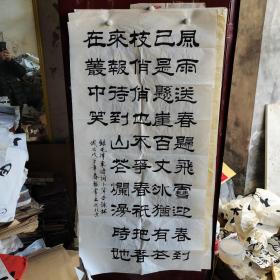 風雨送春歸飛雪迎春到
已是懸崖百丈冰猶有花
枝俏俏也不爭春祇把春
來報待到山花爛漫時她
在叢中笑
錄毛澤東詞卜算子詠梅